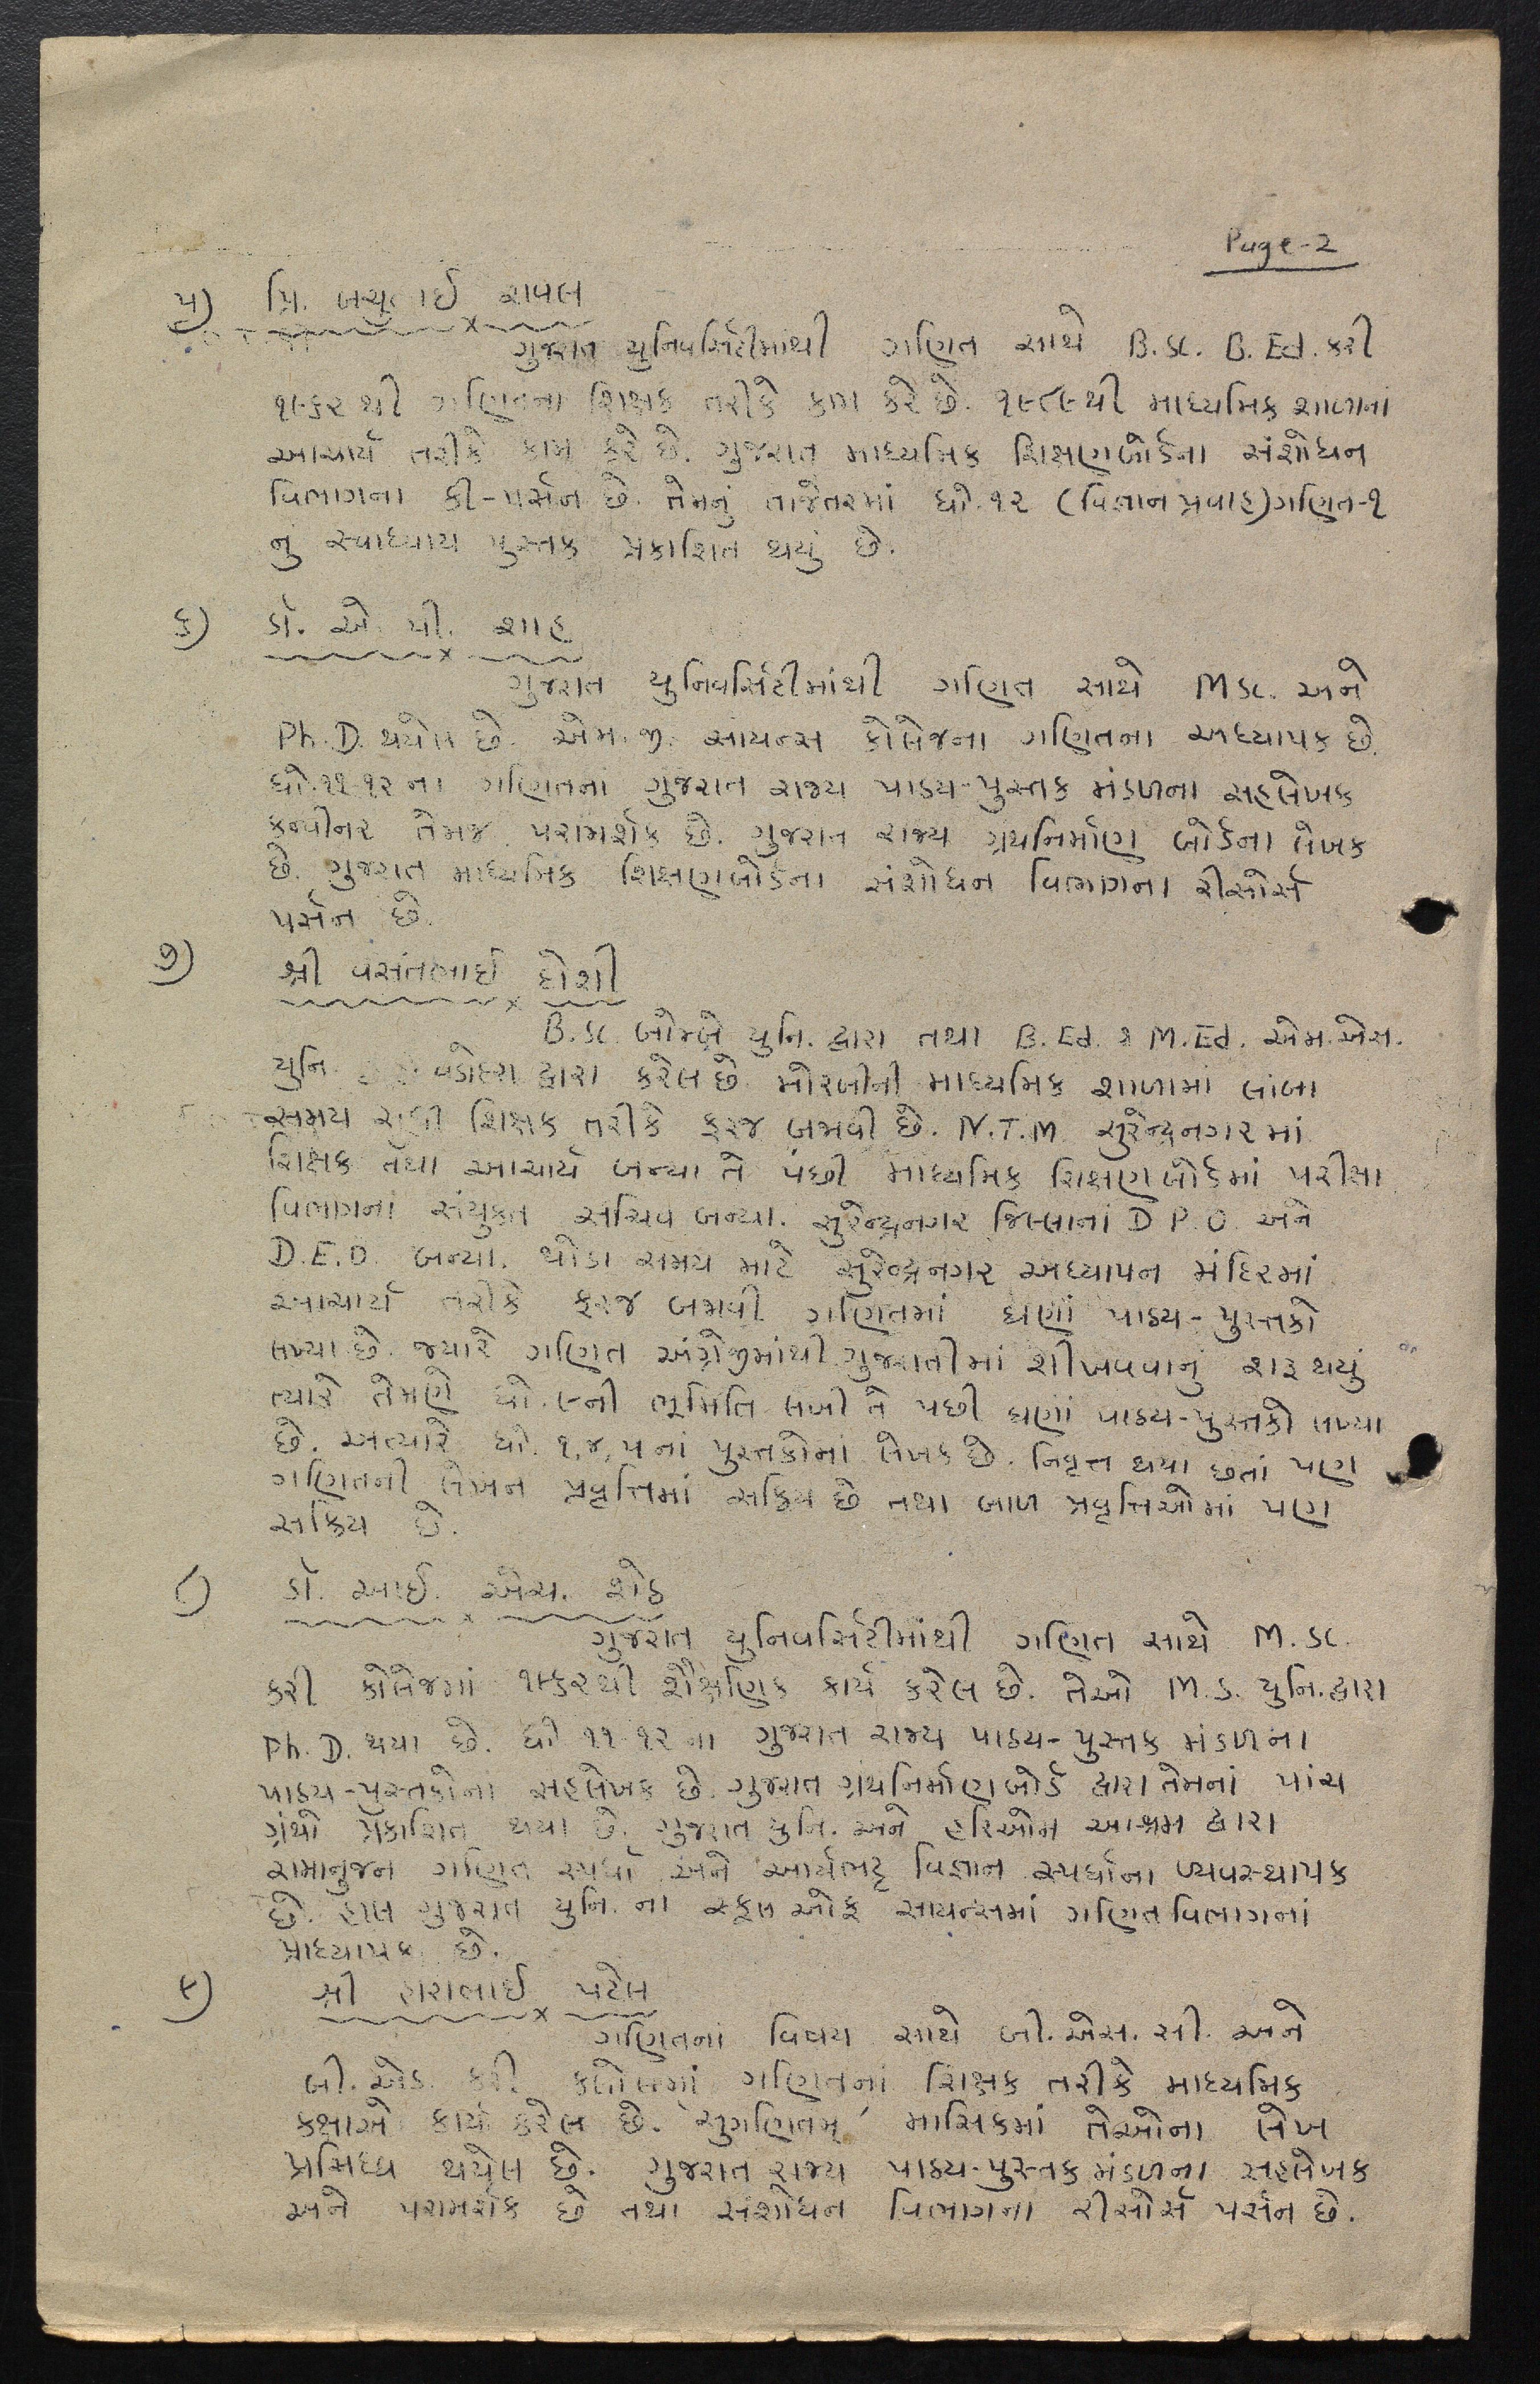 Page-2
૫) પ્રિ. બચુભાઈ રાવલ
ગુજરાત યુનિવર્સિટીમાંથી ગણિત સાથે B.Sc. B.Ed. કરી
૧૯૬૨ થી ગણિતના શિક્ષક તરીકે કામ કરે છે. ૧૯૮૯થી માધ્યમિક શાળાનાં
આચાર્ય તરીકે કામ કરે છે. ગુજરાત માધ્યમિક શિક્ષણબોર્ડના સંશોધન
વિભાગના કી-પર્સન છે. તેમનું તાજેતરમાં ધો.૧૨ (વિજ્ઞાન પ્રવાહ) ગણિત-૧
નું સ્વાધ્યાય પુસ્તક પ્રકાશિત થયું છે.
૬) ડૉ. એ. પી. શાહ
ગુજરાત યુનિવર્સિટીમાંથી ગણિત સાથે M.Sc. અને
Ph.D. થયેલ છે. એમ.જી. સાયન્સ કોલેજના ગણિતના અધ્યાપક છે.
ધો.૧૧-૧૨ ના ગણિતનાં ગુજરાત રાજ્ય પાઠ્ય-પુસ્તક મંડળના સહલેખક
કન્વીનર તેમજ પરામર્શક છે. ગુજરાત રાજ્ય ગ્રંથનિર્માણ બોર્ડના લેખક
છે. ગુજરાત માધ્યમિક શિક્ષણબોર્ડના સંશોધન વિભાગના રીસોર્સ
પર્સન છે.
૭) શ્રી વસંતભાઈ દોશી
B.Sc. બોમ્બે યુનિ. દ્વારા તથા B.Ed. & M.Ed. એમ.એસ.
યુનિ. વડોદરા દ્વારા કરેલ છે. મોરબીની માધ્યમિક શાળામાં લાંબા
સમય સુધી શિક્ષક તરીકે ફરજ બજાવી છે. N.T.M. સુરેન્દ્રનગર માં
શિક્ષક તથા આચાર્ય બન્યા તે પછી માધ્યમિક શિક્ષણબોર્ડમાં પરીક્ષા
વિભાગનાં સંયુક્ત સચિવ બન્યા. સુરેન્દ્રનગર જિલ્લાનાં D.P.O. અને
D.E.O. બન્યા. થોડા સમય માટે સુરેન્દ્રનગર અધ્યાપન મંદિરમાં
આચાર્ય તરીકે ફરજ બજાવી ગણિતમાં ઘણાં પાઠ્ય-પુસ્તકો
લખ્યા છે. જ્યારે ગણિત અંગ્રેજીમાંથી ગુજરાતીમાં શીખવવાનું શરૂ થયું
ત્યારે તેમણે ધો.૯ની ભૂમિતિ લખી તે પછી ઘણાં પાઠ્ય-પુસ્તકો લખ્યા
છે. અત્યારે ધો. ૧,૪,૫ નાં પુસ્તકોનાં લેખક છે. નિવૃત્ત થયા છતાં પણ
ગણિતની લેખન પ્રવૃત્તિમાં સક્રિય છે તથા બાળ પ્રવૃત્તિઓમાં પણ
સક્રિય છે.
૮) ડૉ. આઈ. એચ. શેઠ
ગુજરાત યુનિવર્સિટીમાંથી ગણિત સાથે M.Sc.
કરી કોલેજમાં ૧૯૬૨થી શૈક્ષણિક કાર્ય કરેલ છે. તેઓ M.S. યુનિ.દ્વારા
Ph.D. થયા છે. ધો ૧૧-૧૨ ના ગુજરાત રાજ્ય પાઠ્ય-પુસ્તક મંડળના
પાઠ્ય-પુસ્તકોનાં સહલેખક છે. ગુજરાત ગ્રંથનિર્માણબોર્ડ દ્વારા તેમનાં પાંચ
ગ્રંથો પ્રકાશિત થયા છે. ગુજરાત યુનિ. અને હરિઓમ આશ્રમ દ્વારા
રામાનુજન ગણિત સ્પર્ધા અને આર્યભટ્ટ વિજ્ઞાન સ્પર્ધાના વ્યવસ્થાપક
છે. હાલ ગુજરાત યુનિ. ના સ્કૂલ ઓફ સાયન્સમાં ગણિત વિભાગનાં
પ્રાધ્યાપક છે.
૯) શ્રી હરાભાઈ પટેલ
ગણિતનાં વિષય સાથે બી.એસ.સી. અને
બી.એડ. કરી કલોલમાં ગણિતનાં શિક્ષક તરીકે માધ્યમિક
કક્ષાએ કાર્ય કરેલ છે. 'સુગણિતમ્' માસિકમાં તેઓના લેખ
પ્રસિધ્ધ થયેલ છે. ગુજરાત રાજ્ય પાઠ્ય-પુસ્તક મંડળના સહલેખક
અને પરામર્શક છે તથા સંશોધન વિભાગના રીસોર્સ પર્સન છે.